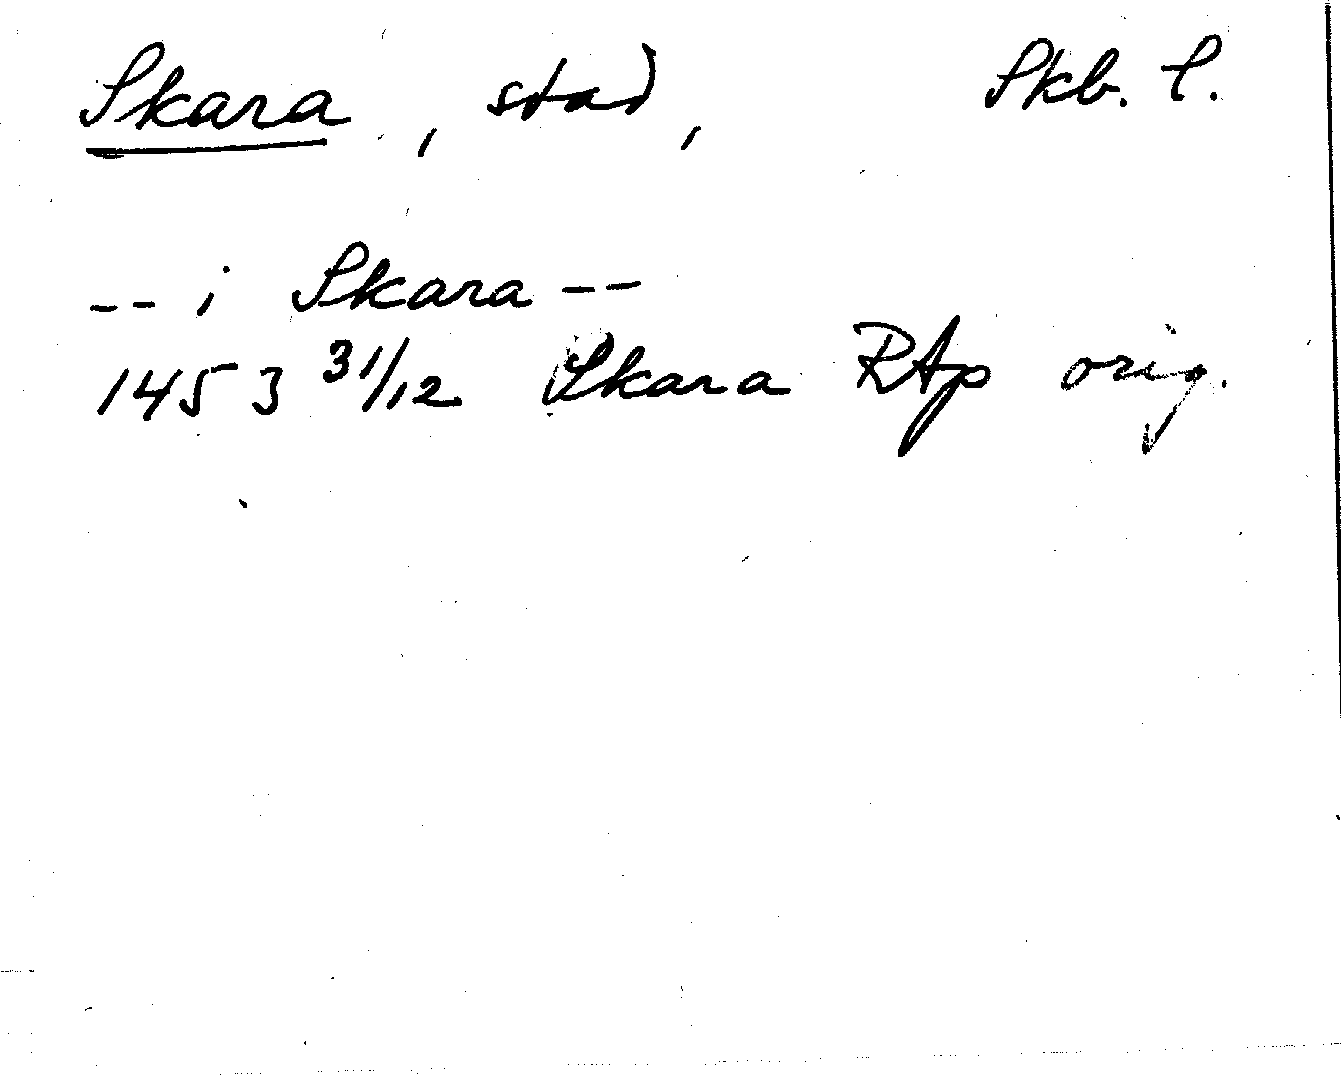 Skara, stad, Skb. l.
-- i Skara --
1453 31/12 Skara RAp orig.